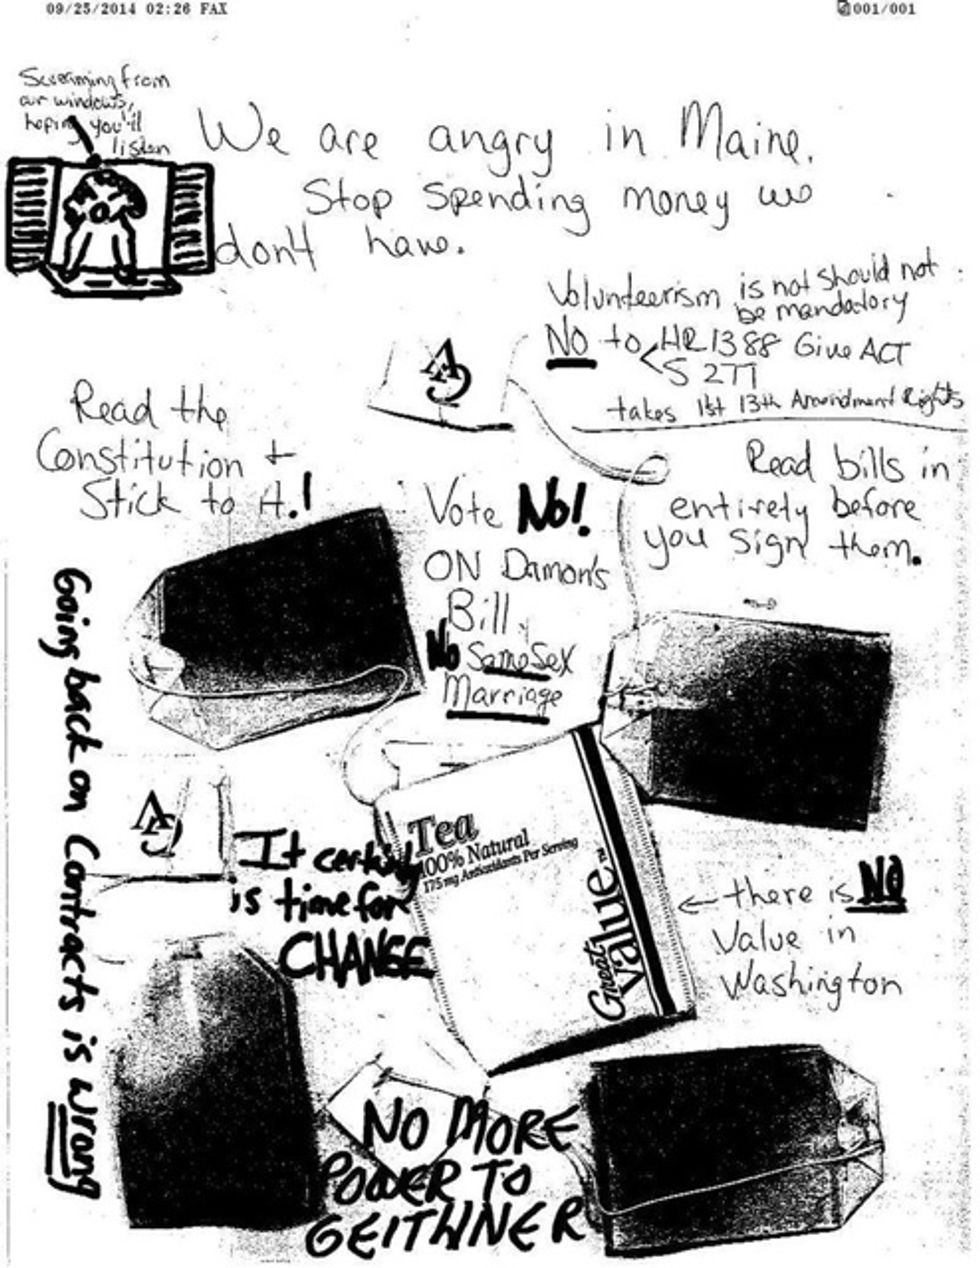 09/25/2014 02:26 FAX
001/001
Screaming from
our windows,
hoping you'll
listen
We are angry in Maine.
Stop spending money we
don't have.
Volunteerism is not should not
be mandatory
NO to HR1388 Give ACT
S 277
takes 1st 13th Amendment Rights
Read the
Constitution +
Stick to it.!
Read bills in
entirety before
you sign them.
Vote No!
ON Damon's
Bill.
No Same Sex
Marriage
Going back on Contracts is wrong
Tea
100% Natural
175 mg Antioxidants Per Serving
Great Value™
It certainly
is time for
CHANGE
← there is NO
Value in
Washington
NO MORE
POWER TO
GEITHNER